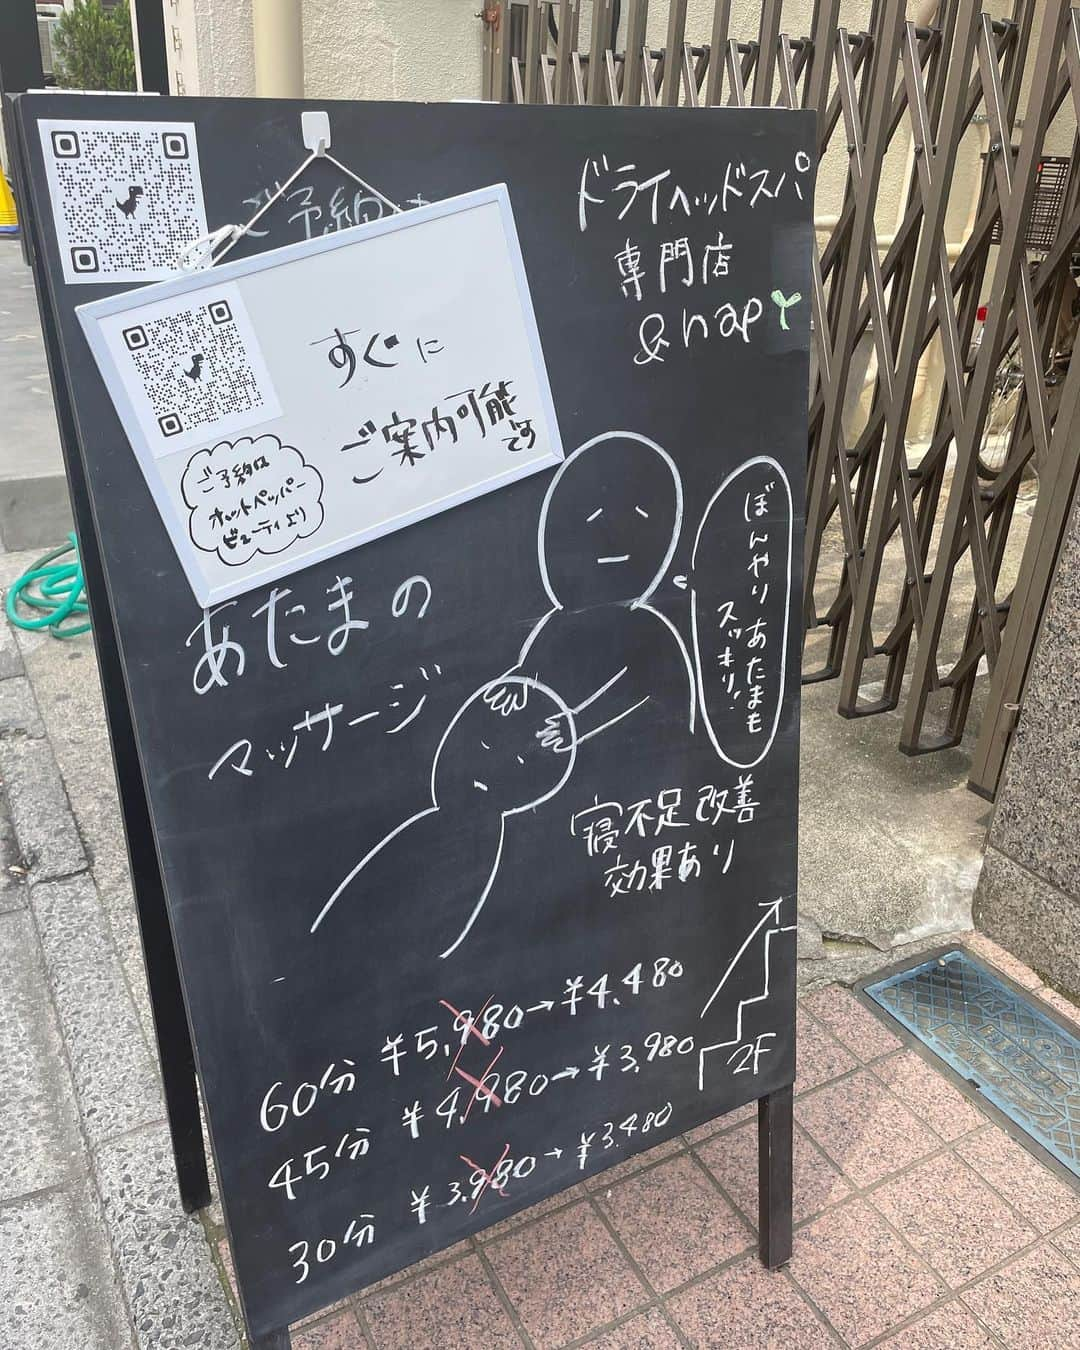 ご予約は
ドライヘッドスパ
専門店
&nap
すぐに
ご案内可能
です
ご予約は
ホットペッパー
ビューティより
あたまの
マッサージ
ぼんやりあたまも
スッキリ!
寝不足改善
効果あり
60分 ¥5,980→¥4,480
45分 ¥4,980→¥3,980
30分 ¥3,980→¥3,480
2F